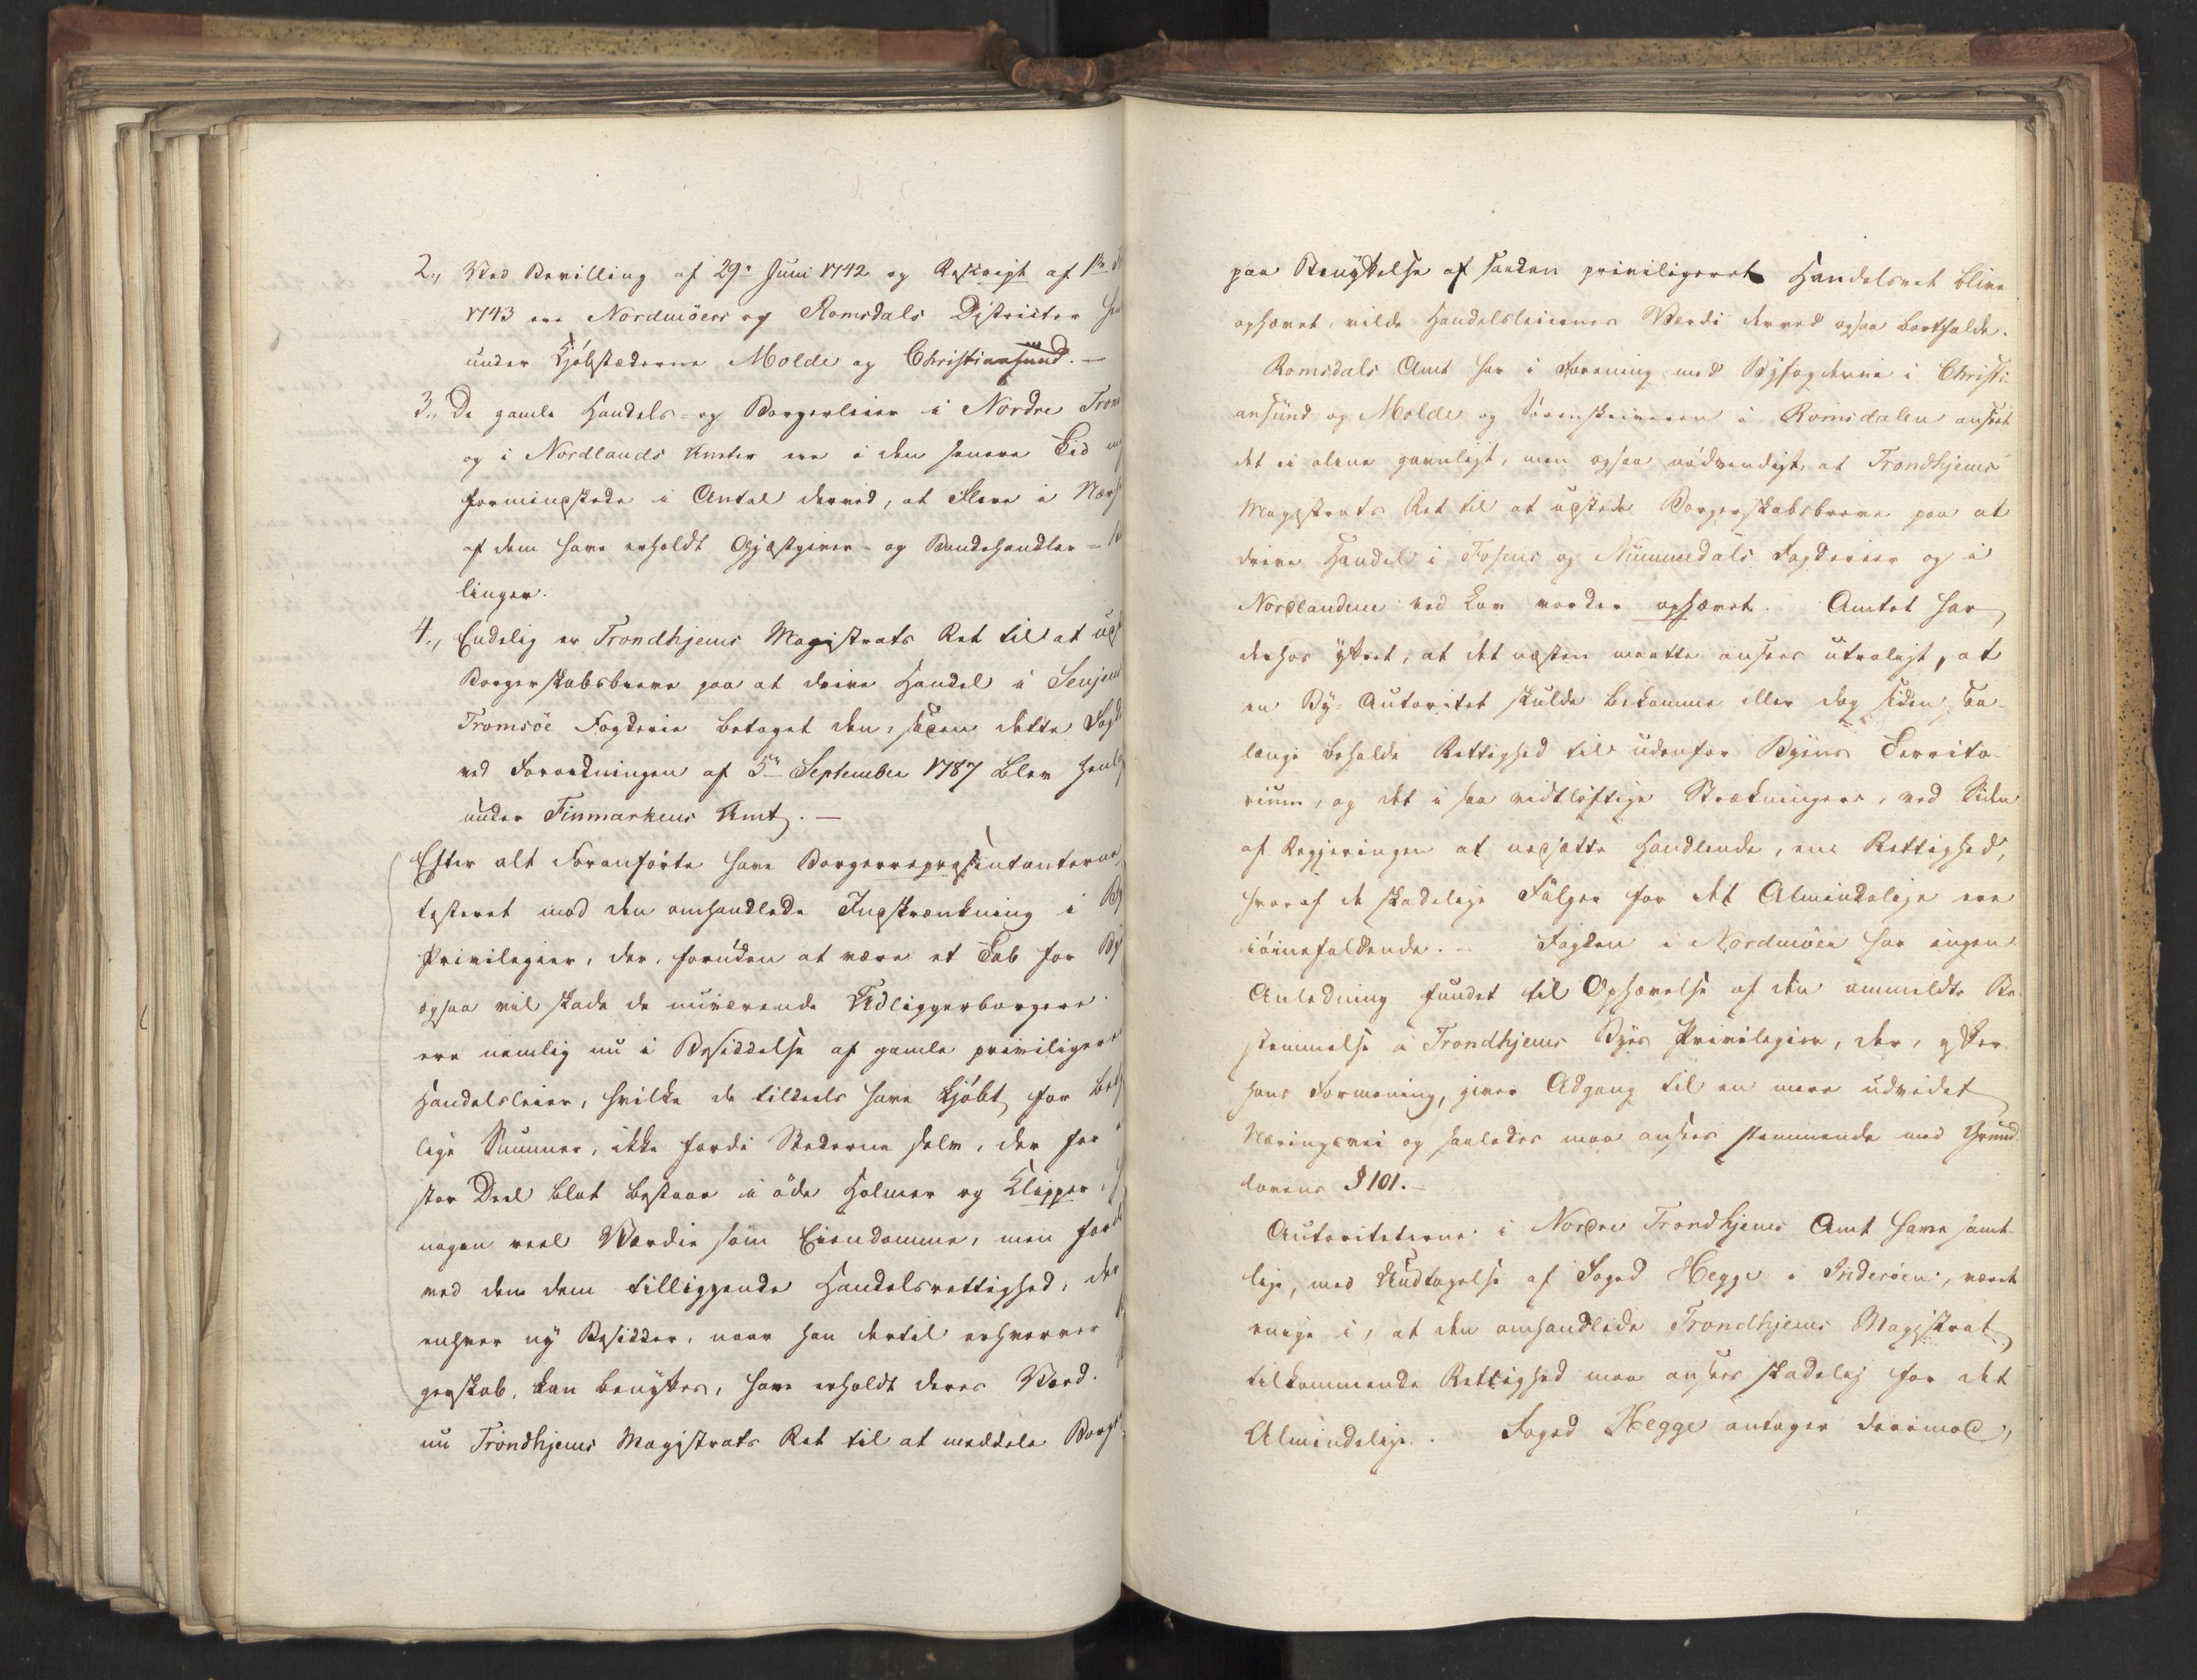 2., Ved Bevilling af 29de Juni 1742 og Rescript af 1ste
1743 ere Nordmöers og Romsdals Districter
under Kjöbstæderne Molde og Christiansund. –
3., De gamle Handels- og Borgerleier i Nordre Tron
og i Nordlands Amter ere i den senere Tid
formindskede i Antal derved, at Flere i Nær
af dem have erholdt Gjæstgiver- og Landhandler-
linger.
4., Endelig er Trondhjems Magistrats Ret til at ud
Borgerskabsbreve paa at drive Handel i Senjens
Tromsöe Fogderie betaget den, siden dette Fogd
ved Forordningen af 5te September 1787 blev henl
under Finmarkens Amt. –
Efter alt Foranførte have Borgerrepræsentanterne
testeret mod den omhandlede Indskrænkning i By
Privilegier, der, foruden at være et Tab for By
ogsaa vil skade de nuværende Udliggerborgere.
ere nemlig nu i Besiddelse af gamle priviligere
Handelsleier, hvilke de tildeels have kjöbt for bet
lige Summer, ikke fordi Stederne selv, der for
stor Deel blot bestaae i öde Holmer og Klipper,
nogen reel Værdie som Eiendomme, men ford
ved den dem tilliggende Handelsrettighed, der
enhver ny Besidder, naar han dertil erhverver
gerskab, kan benyttes, have erholdt deres Værd.
nu Trondhjems Magistrats Ret til at meddele Borg
paa Benyttelse af saadan priviligeret Handelsret blive
ophævet, vilde Handelsleiernes Værdi derved ogsaa bortfalde.
Romsdals Amt har i Forening med Byfogderne i Christi-
ansund og Molde og Sorenskriveren i Romsdalen anseet
det ei alene gavnligt, men ogsaa nödvendigt, at Trondhjems
Magistrats Ret til at udstede Borgerskabsbreve paa at
drive Handel i Fosens og Nummedals Fogderier og i
Nordlandene ved Lov vorder ophævet. Amtet har
derhos yttret, at det næsten maatte ansees utroligt, at
en By-Autoritet skulde bekomme eller dog siden saa
længe beholde Rettighed til udenfor Byens Territo-
rium, og det i saa vidtlöftige Strækninger, ved Siden
af Regjeringen at nedsætte Handlende, en Rettighed,
hvoraf de skadelige Fölger for det Almindelige ere
iöinefaldende. – Fogden i Nordmöer har ingen
Anledning fundet til Ophævelse af den ommeldte Be-
stemmelse i Trondhjems Byes Privilegier, der, efter
hans Formening, giver Adgang til en mere udvidet
Næringsvei og saaledes maa ansees stemmende med Grund-
lovens § 101. –
Autoriteterne i Nordre Trondhjems Amt have samt-
lige, med Undtagelse af Foged Hegge i Inderöen, været
enige i, at den omhandlede Trondhjems Magistrat
tilkommende Rettighed maa ansees skadelig for det
Almindelige. Foged Hegge antager derimod,